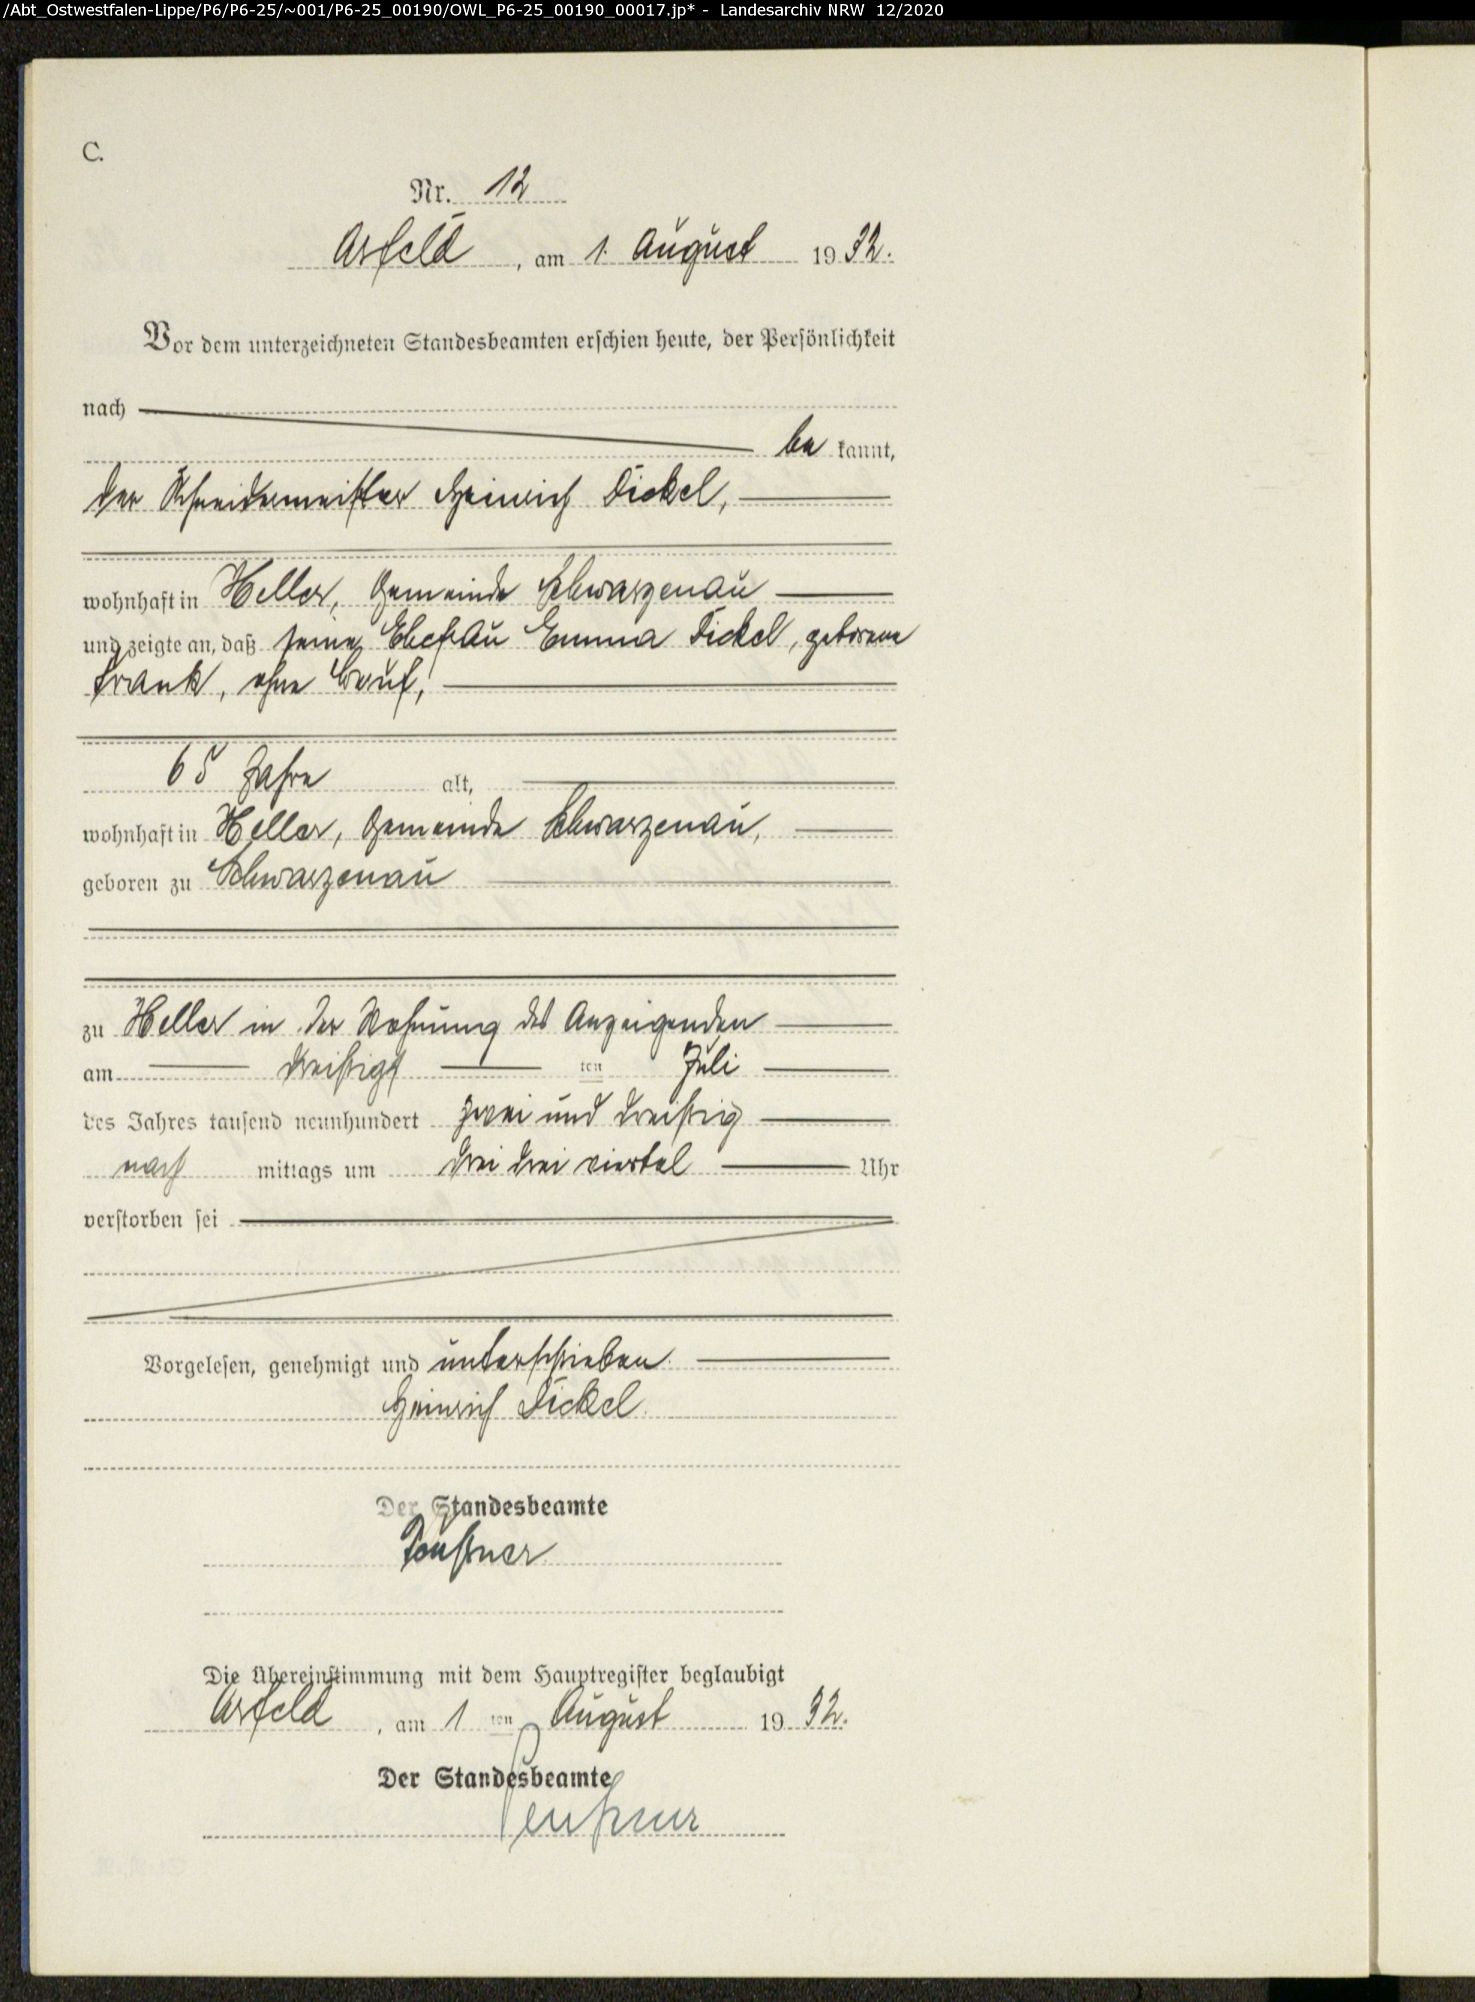 /Abt_Ostwestfalen-Lippe/P6/P6-25/~001/P6-25_00190/OWL_P6-25_00190_00017.jp* - Landesarchiv NRW 12/2020
C.
Nr. 12
Arfeld, am 1. August 1932.
Vor dem unterzeichneten Standesbeamten erschien heute, der Persönlichkeit
nach
be kannt,
der Schneidermeister Heinrich Dickel,
wohnhaft in Heller, Gemeinde Schwarzenau
und zeigte an, daß seine Ehefrau Emma Dickel, geborene
Frank, ohne Beruf,
65 Jahre alt,
wohnhaft in Heller, Gemeinde Schwarzenau,
geboren zu Schwarzenau
zu Heller in der Wohnung des Anzeigenden
am dreißigsten Juli
des Jahres tausend neunhundert zwei und dreißig
nach mittags um drei drei viertel Uhr
verstorben sei
Vorgelesen, genehmigt und unterschrieben.
Heinrich Dickel.
Der Standesbeamte
Die Übereinstimmung mit dem Hauptregister beglaubigt
Arfeld, am 1 ten August 1932.
Der Standesbeamte